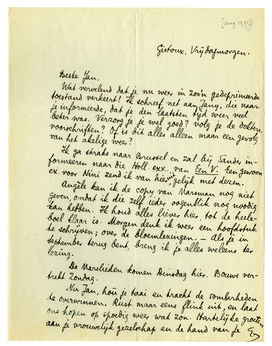 [aug 1937]
Gistoux, Vrijdagmorgen.
Beste Jan,
Wat vervelend dat je nu weer in zoo'n gedeprimeerde
toestand verkeert! Ik schreef net aan Jany, die naar
je informeerde, dat je den laatsten tijd weer veel
beter was. Verzorg je je wel goed? volg je de dokters-
voorschriften? Of is dit alles alleen maar een gevolg
van het akelige weer?
Ik ga straks naar Brussel en zal bij Sander in-
formeeren naar die Holl. exx. van Een V. Een gewoon
ex. voor Nini zend ik van hier gelijk met dezen.
Angèle kan ik de copy van nog niet
geven, omdat ik die zelf ieder oogenblik nog noodig
kan hebben. Ik houd alles liever hier, tot de heele
boel klaar is. Morgen denk ik weer een hoofdstuk
te schrijven; over de bloemlezingen — Als je in
september terug bent, breng ik je alles weleens ter
lezing.
De komen Dinsdag hier. Bouws ver-
trekt Zondag.
Nu Jan, hou je taai en tracht de somberheden
te overwinnen. Rust maar eens flink uit, en laat
ons hopen op spoedig weer wat zon. Hartelijke groeten
aan je vrouwelijk gezelschap en de hand van je E.